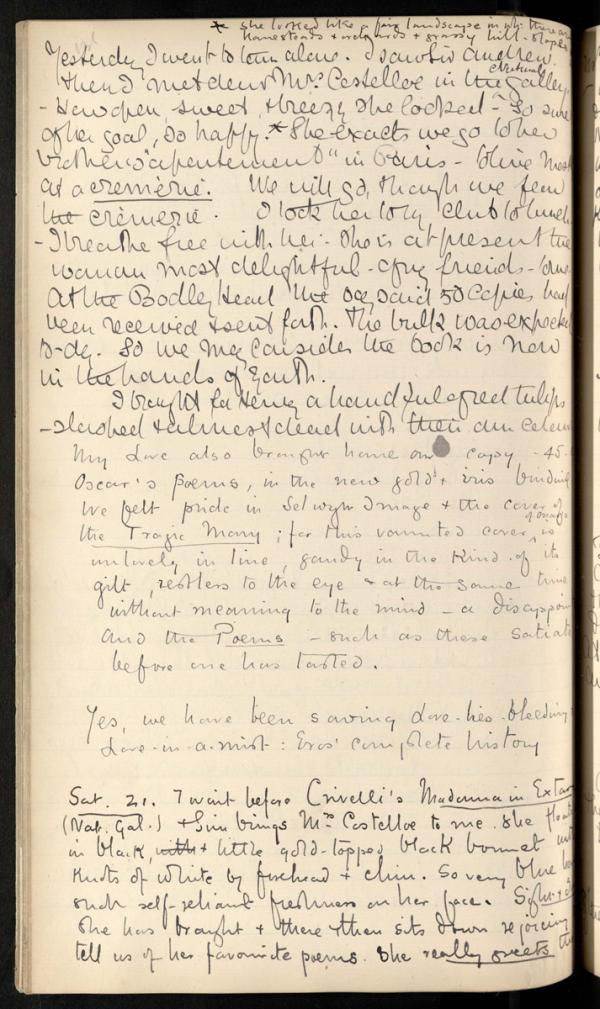 * she looked like a fair landscape in wh. there are
homesteads & orchards & grassy hill-slopes
Yesterday I went to town alone. I saw Sir Andrew.
Then I met dear Mrs Costelloe in the National Gallery
- How open, sweet, & breezy she looked - so sure
of her goal, so happy.* She exacts we go to her
brother's "apentement" in Paris - to live most
at a cremèrie. We will go, though we fear
the crèmerie. I took her to my Club to lunch
- I breathe free with her - she is at present the
woman most delightful of my friends - to me.
At the Bodley Head the boy said 50 copies had
been received & sent forth. The bulk was expected
to-day. So we may consider the book is now
in the hands of Earth.
I brought for Henry a handful of red tulips
- slashed & almost dead with their own colour
My Love also brought home our copy - 45 -
Oscar's Poems, in the new gold & iris binding
We felt pride in Selwyn Image & the cover of
the Tragic Mary; for this vaunted cover of Oscar's is
unlovely in line, gaudy in the kind of its
gilt, restless to the eye & at the same time
without meaning to the mind - a disappoin
And the Poems - such as these satiate
before one has tasted.
Yes, we have been sowing Love-lies-bleeding
Love-in-a-mist: Eros' complete history
Sat. 21. I wait before Crivelli's Madonna in Extas
(Nat. Gal.) & Sim brings Mrs Costelloe to me. She floats
in black, with & little gold-topped black bonnet with
knots of white by forehead & chin. So very blue her
such self-reliant freshness on her face. Sight &
she has brought & there & then sits down rejoicing
tell us of her favourite poems. She really greets the